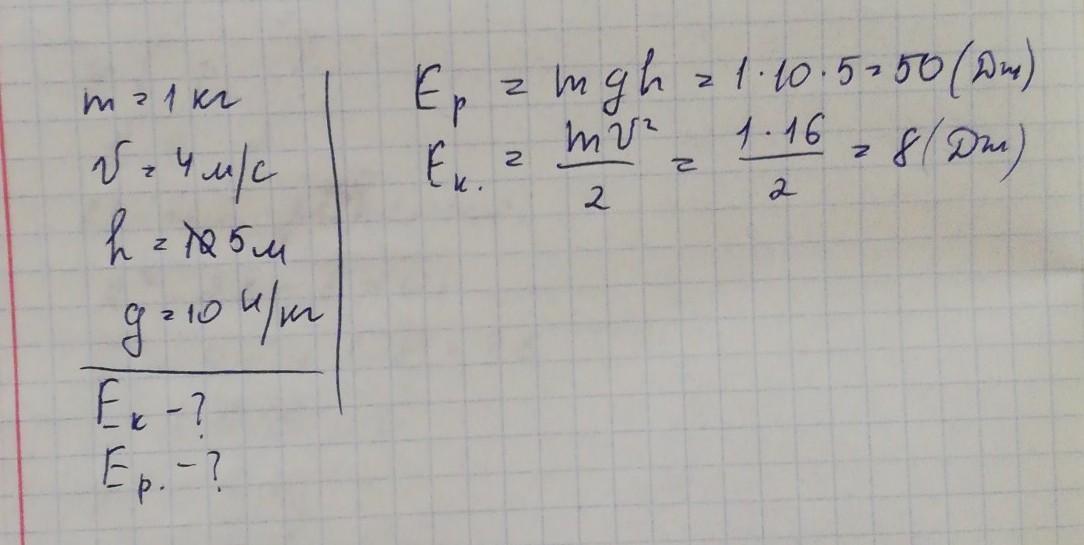 m = 1 кг
v = 4 м/с
h = 5 м
g = 10 Н/кг
Eк - ?
Ep. - ?
Ep = mgh = 1 · 10 · 5 = 50 (Дж)
Eк. = mv²/2 = 1 · 16/2 = 8 (Дж)